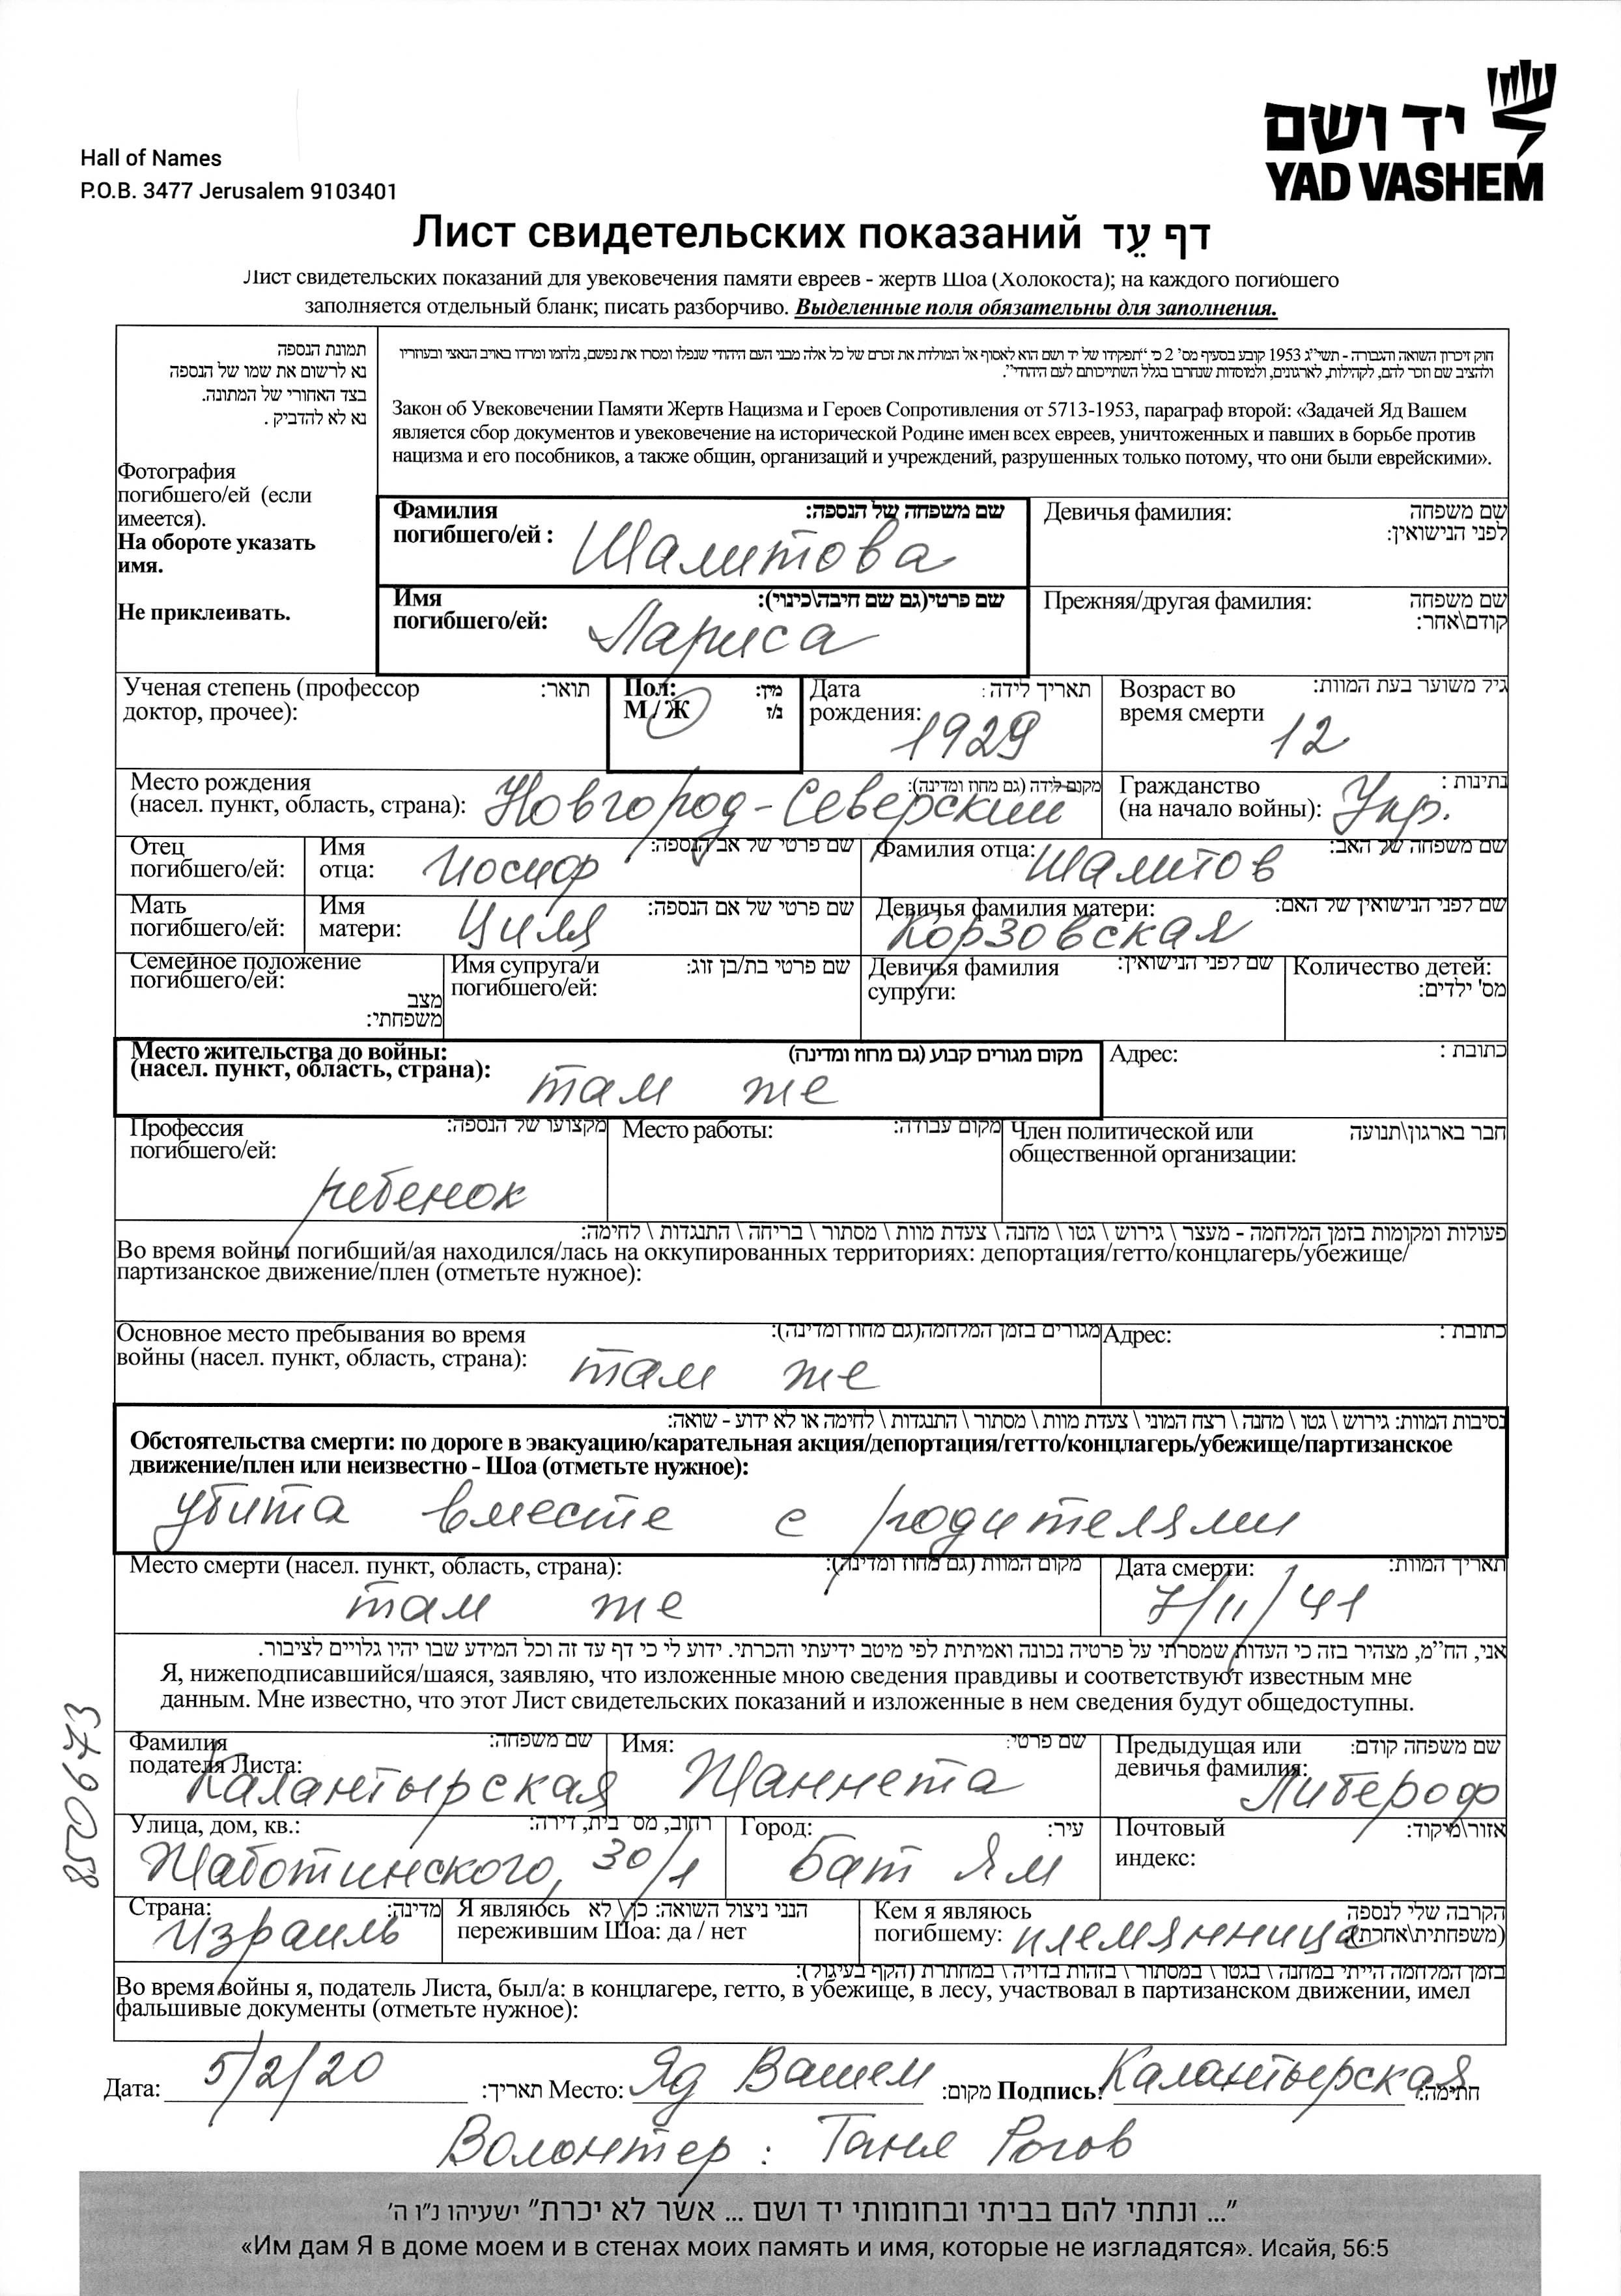 יד ושם
YAD VASHEM
Hall of Names
P.O.B. 3477 Jerusalem 9103401
Лист свидетельских показаний דף עֵד
Лист свидетельских показаний для увековечения памяти евреев - жертв Шоа (Холокоста); на каждого погибшего
заполняется отдельный бланк; писать разборчиво. Выделенные поля обязательны для заполнения.
תמונת הנספה
נא לרשום את שמו של הנספה
בצד האחורי של המתונה.
נא לא להדביק .
Фотография
погибшего/ей (если
имеется).
На обороте указать
имя.
Не приклеивать.
חוק זיכרון השואה והגבורה - תשי"ג 1953 קובע בסעיף מס' 2 כי "תפקידו של יד ושם הוא לאסוף אל המולדת את זכרם של כל אלה מבני העם היהודי שנפלו ומסרו את נפשם, נלחמו ומרדו באויב הנאצי ובעוזריו
ולהציב שם וזכר להם, לקהילות, לארגונים, ולמוסדות שנחרבו בגלל השתייכותם לעם היהודי".
Закон об Увековечении Памяти Жертв Нацизма и Героев Сопротивления от 5713-1953, параграф второй: «Задачей Яд Вашем
является сбор документов и увековечение на исторической Родине имен всех евреев, уничтоженных и павших в борьбе против
нацизма и его пособников, а также общин, организаций и учреждений, разрушенных только потому, что они были еврейскими».
Фамилия погибшего/ей : שם משפחה של הנספה:
Шалитова
Девичья фамилия: שם משפחה לפני הנישואין:
Имя погибшего/ей: שם פרטי(גם שם חיבה\כינוי):
Лариса
Прежняя/другая фамилия: שם משפחה קודם\אחר:
Ученая степень (профессор доктор, прочее): תואר:
Пол: М / Ж מין: ז/נ
Дата рождения: תאריך לידה : 1929
Возраст во время смерти גיל משוער בעת המוות: 12
Место рождения (насел. пункт, область, страна): מקום לידה (גם מחוז ומדינה):
Новгород-Северский
Гражданство (на начало войны): נתינות : Укр.
Отец погибшего/ей: Имя отца: שם פרטי של אב הנספה: Иосиф
Фамилия отца: שם משפחה של האב: Шалитов
Мать погибшего/ей: Имя матери: שם פרטי של אם הנספה: Циля
Девичья фамилия матери: שם לפני הנישואין של האם: Корзовская
Семейное положение погибшего/ей: מצב משפחתי:
Имя супруга/и погибшего/ей: שם פרטי בת/בן זוג:
Девичья фамилия супруги: שם לפני הנישואין:
Количество детей: מס' ילדים:
Место жительства до войны: (насел. пункт, область, страна): מקום מגורים קבוע (גם מחוז ומדינה)
там же
Адрес: כתובת :
Профессия погибшего/ей: מקצועו של הנספה: ребенок
Место работы: מקום עבודה:
Член политической или общественной организации: חבר בארגון\תנועה
פעולות ומקומות בזמן המלחמה - מעצר \ גירוש \ גטו \ מחנה \ צעדת מוות \ מסתור \ בריחה \ התנגדות \ לחימה:
Во время войны погибший/ая находился/лась на оккупированных территориях: депортация/гетто/концлагерь/убежище/
партизанское движение/плен (отметьте нужное):
Основное место пребывания во время войны (насел. пункт, область, страна): מגורים בזמן המלחמה(גם מחוז ומדינה):
там же
Адрес: כתובת :
נסיבות המוות: גירוש \ גטו \ מחנה \ רצח המוני \ צעדת מוות \ מסתור \ התנגדות \ לחימה או לא ידוע - שואה:
Обстоятельства смерти: по дороге в эвакуацию/карательная акция/депортация/гетто/концлагерь/убежище/партизанское
движение/плен или неизвестно - Шоа (отметьте нужное):
убита вместе с родителями
Место смерти (насел. пункт, область, страна): מקום המוות (גם מחוז ומדינה):
там же
Дата смерти: תאריך המוות: 7/11/41
אני, הח"מ, מצהיר בזה כי העדות שמסרתי על פרטיה נכונה ואמיתית לפי מיטב ידיעתי והכרתי. ידוע לי כי דף עד זה וכל המידע שבו יהיו גלויים לציבור.
Я, нижеподписавшийся/шаяся, заявляю, что изложенные мною сведения правдивы и соответствуют известным мне
данным. Мне известно, что этот Лист свидетельских показаний и изложенные в нем сведения будут общедоступны.
850673
Фамилия подателя Листа: שם משפחה: Калантырская
Имя: שם פרטי: Жаннета
Предыдущая или девичья фамилия: שם משפחה קודם: Либероф
Улица, дом, кв.: רחוב, מס' בית, דירה: Жаботинского, 30/1
Город: עיר: Бат Ям
Почтовый индекс: אזור\מיקוד:
Страна: מדינה: Израиль
Я являюсь пережившим Шоа: да / нет הנני ניצול השואה: כן \ לא
Кем я являюсь погибшему: הקרבה שלי לנספה (משפחתית\אחרת): племянница
בזמן המלחמה הייתי במחנה \ בגטו \ במסתור \ בזהות בדויה \ במחתרת (הקף בעיגול):
Во время войны я, податель Листа, был/а: в концлагере, гетто, в убежище, в лесу, участвовал в партизанском движении, имел
фальшивые документы (отметьте нужное):
Дата: 5/2/20 תאריך: Место: Яд Вашем מקום: Подпись: Калантырская חתימה:
Волонтер : Таня Рогов
"... ונתתי להם בביתי ובחומותי יד ושם ... אשר לא יכרת" ישעיהו נ"ו ה'
«Им дам Я в доме моем и в стенах моих память и имя, которые не изглядятся». Исайя, 56:5